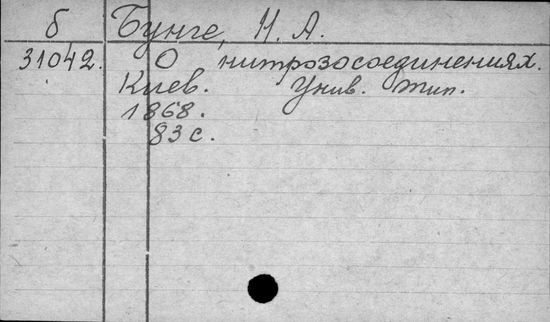 б Бунге, Н. А.
31042. О нитрозосоединениях.
Киев. Унив. тип.
1868.
83 с.